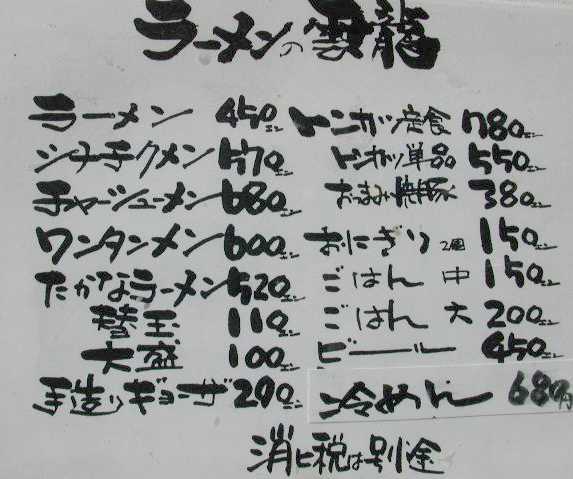 ラーメンの雲龍
ラーメン 450エン
シナチクメン 570エン
チャーシューメン 680エン
ワンタンメン 600エン
たかなラーメン 520エン
替玉 110エン
大盛 100エン
手造りギョーザ 290エン
トンカツ定食 780エン
トンカツ単品 550エン
おつまみ焼豚 380エン
おにぎり 2個 150エン
ごはん 中 150エン
ごはん 大 200エン
ビール 450エン
冷めん 680円
消ヒ税は別途